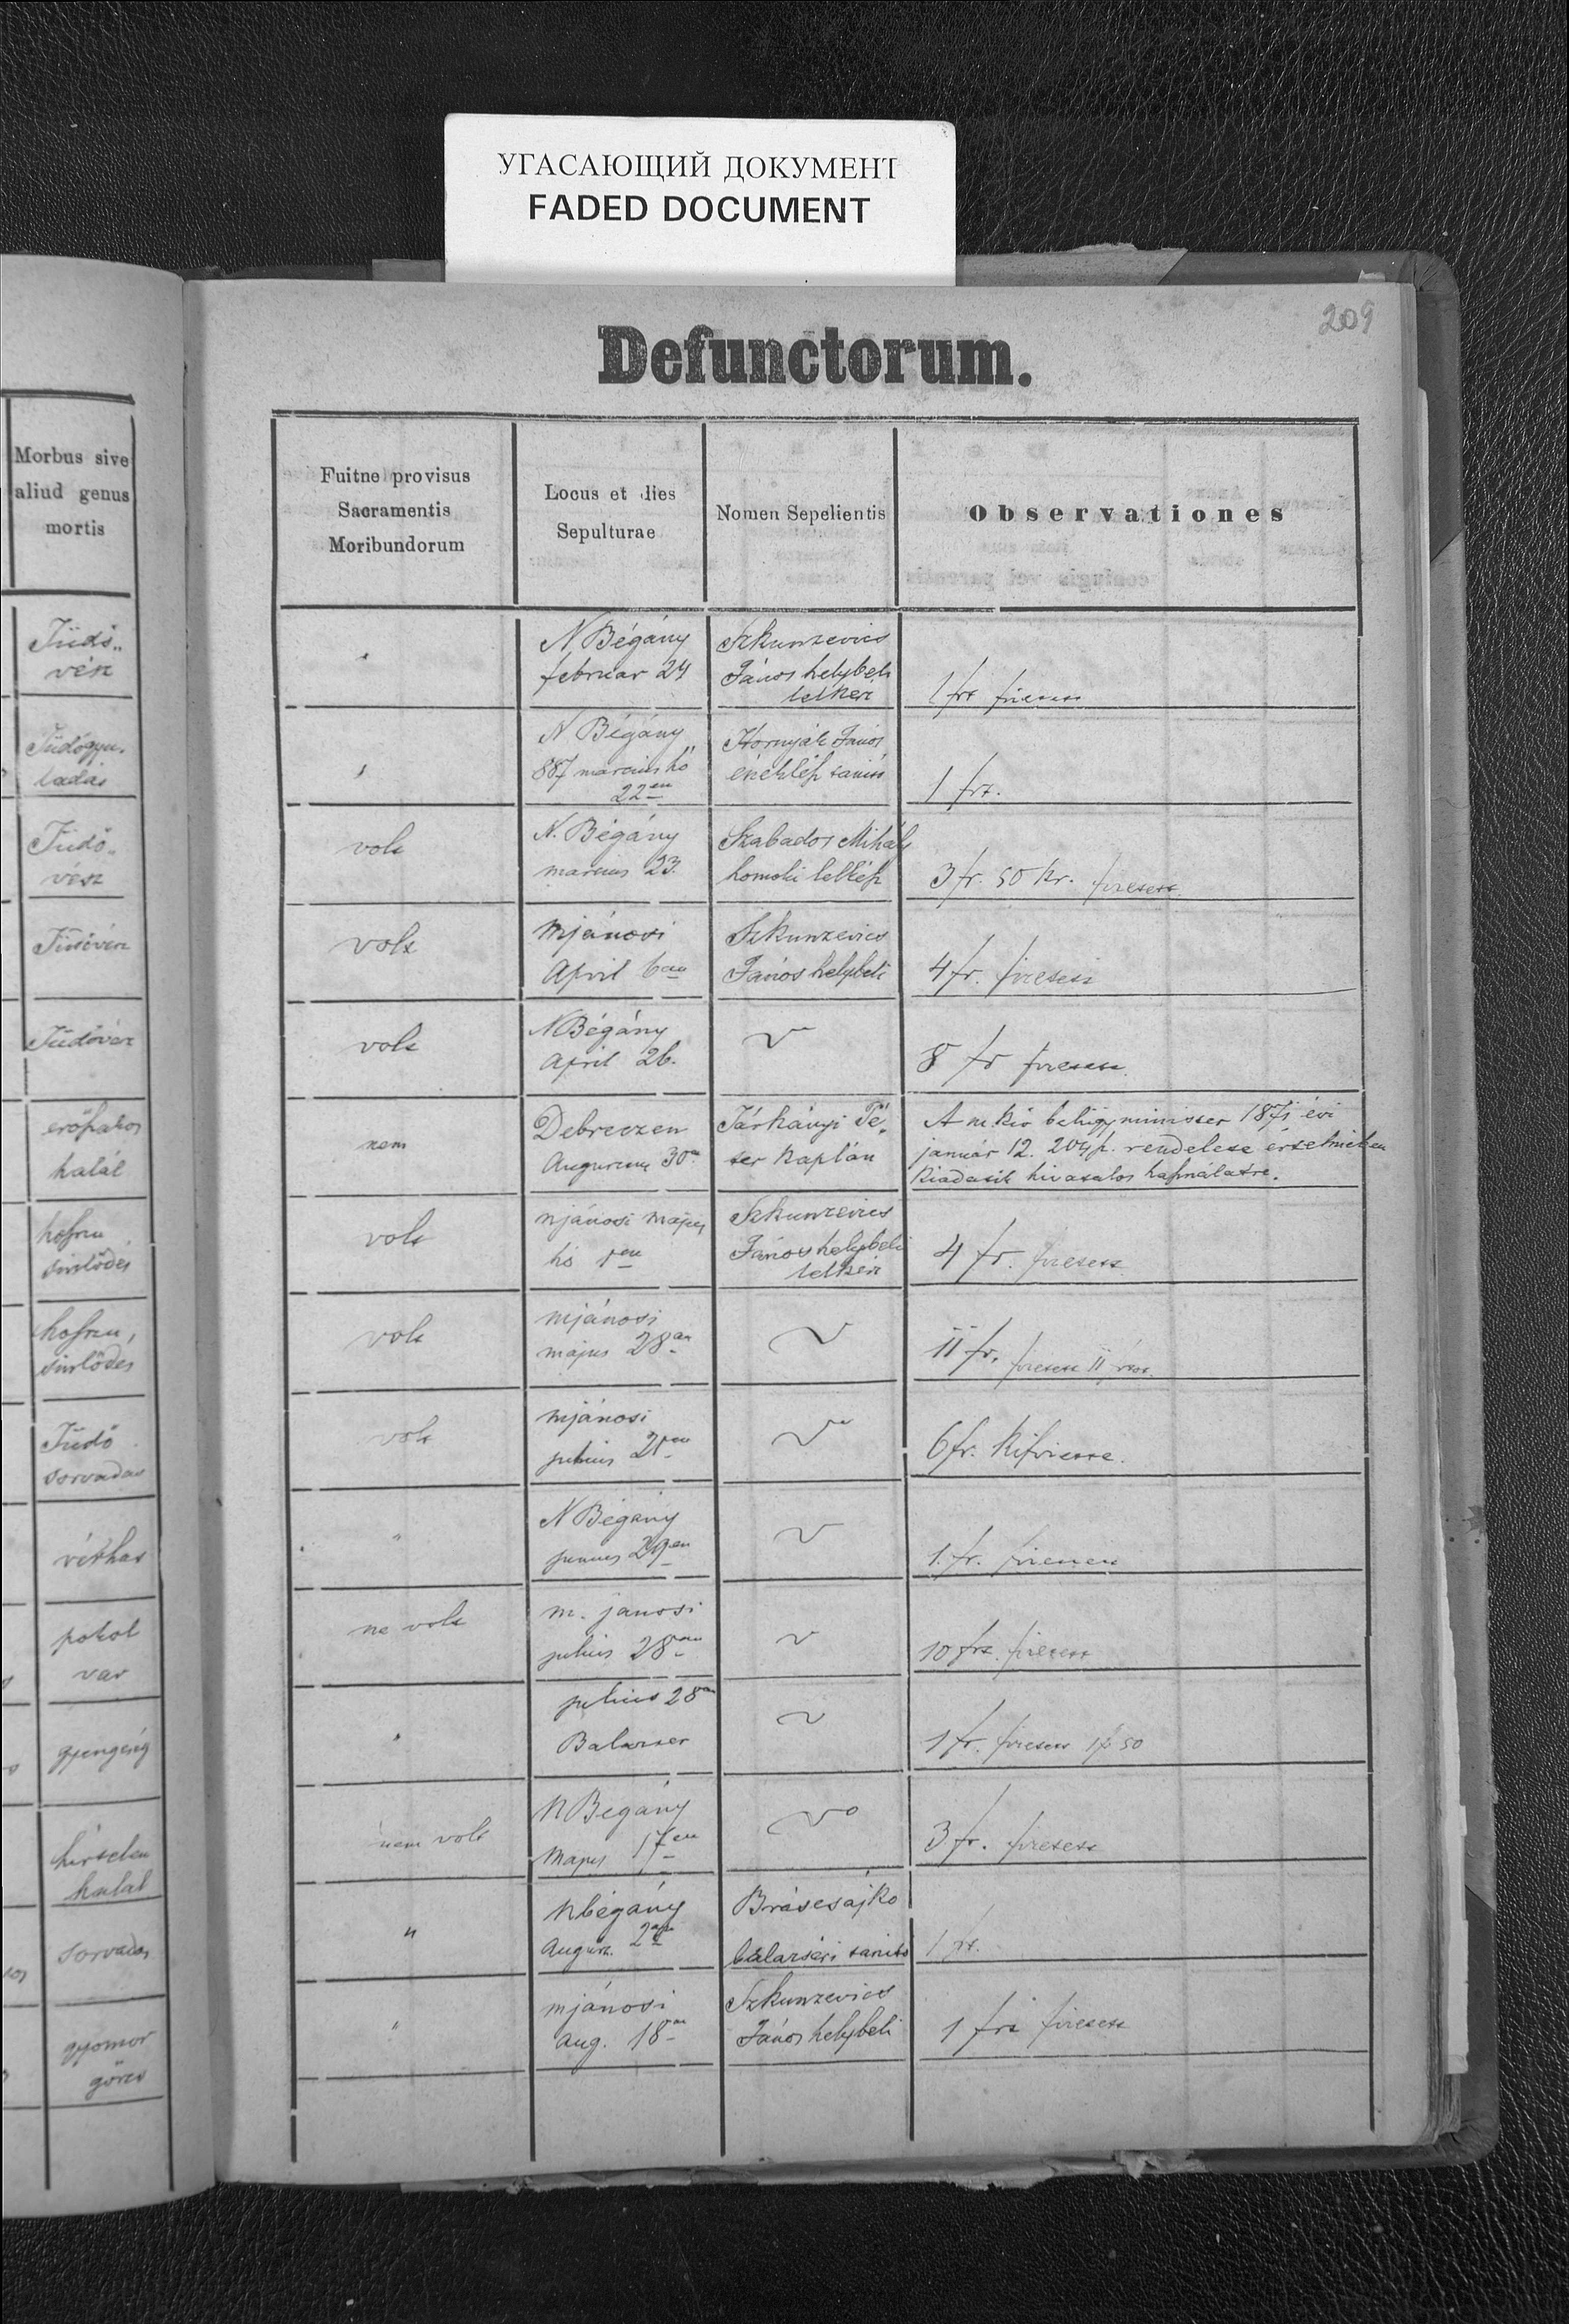 УГАСАЮЩИЙ ДОКУМЕНТ
FADED DOCUMENT
209
Defunctorum.
Morbus sive
aliud genus
mortis
Fuitne provisus
Sacramentis
Moribundorum
Locus et dies
Sepulturae
Nomen Sepelientis
Observationes
Tüdő-
vész
"
N Bégány
februar 24
Szkunzevics
János helybeli
lelkész
1 frt fizetett
Tüdőgyu-
ladás
"
N Bégány
887 martius hó
22en
Hornyák János
éneklész tanító
1 frt.
Tüdő-
vész
volt
N. Bégány
martius 23.
Szabados Mihály
homoki lelkész
3 fr. 50 kr. fizetett
Tüdővész
volt
mjánosi
April 6an
Szkunzevics
János helybeli
4 fr. fizetett
Tüdővész
volt
N Bégány
April 26.
8 fr fizetett
erőszakos
halál
nem
Debreczen
30
Tárkányi Pé-
ter káplán
A m. kir belügyminister 187 évi
január 12. rendelete értelmében
kiadatik hivatalos használatra.
volt
mjánosi május
hó 1en
Szkunzevics
János helybeli
lelkész
4 fr. fizetett
volt
mjánosi
május 28an
11 fr. fizetett
Tüdő
sorvadás
volt
mjánosi
julius
6 fr. kifizette.
vérhas
"
N Bégány
junius 29en
1. fr. fizetett
pokol
var
ne volt
m. jánosi
julius 28an
10 frt. fizetett
gyengeség
"
julius 28an
Balazser
1 fr. fizetett 1 f 50
hirtelen
halál
nem volt
N Bégány
május 17en
3 fr. fizetett
sorvadás
"
Nbégány
August. 2an
balazséri tanító
1 frt.
gyomor
görcs
"
mjánosi
aug. 18an
Szkunzevics
János helybeli
1 frt fizetett